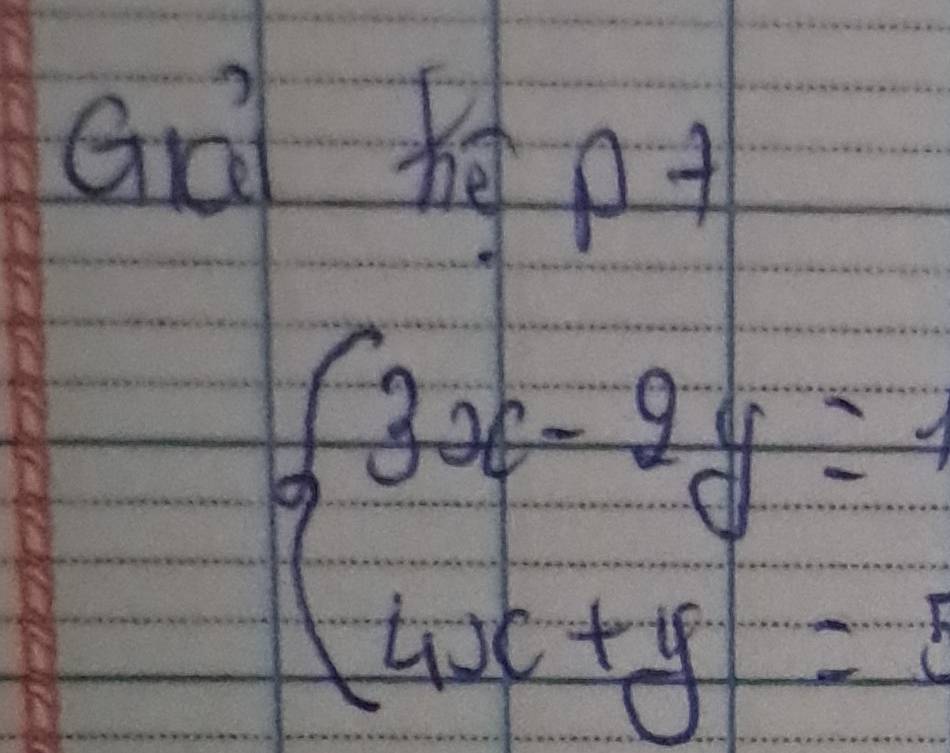 Giải hệ pt
{ 3x - 2y = 1
4x + y = 5